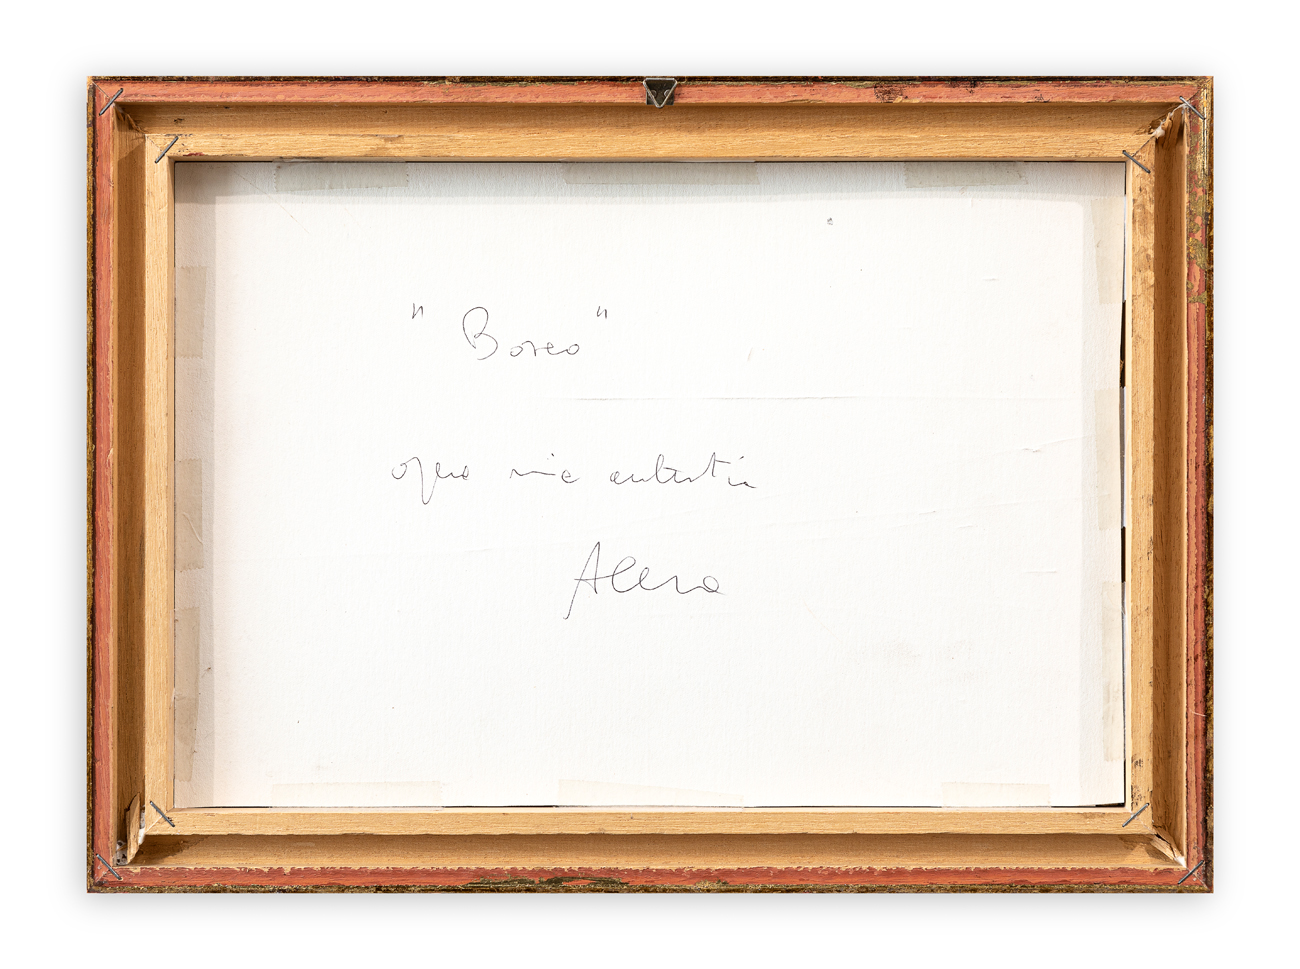 "Boreo"
opera mia autentica
Alera